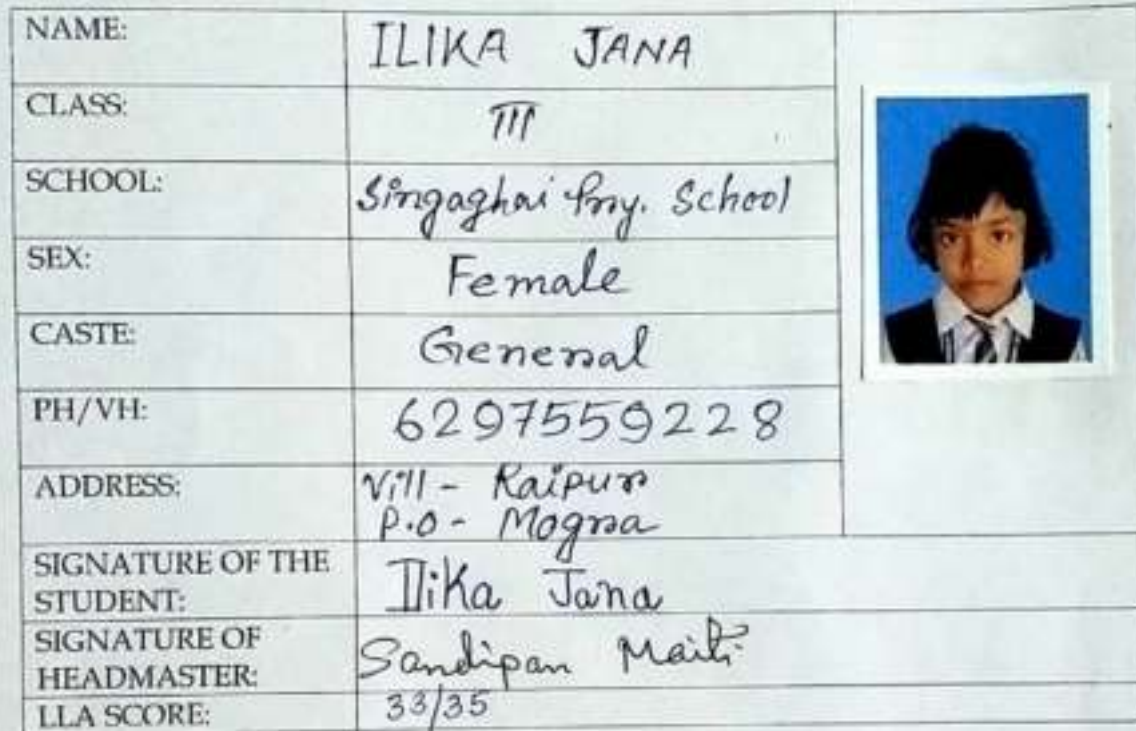 NAME: ILIKA JANA
CLASS: III
SCHOOL: Singaghai Pry. School
SEX: Female
CASTE: General
PH/VH: 6297559228
ADDRESS: Vill - Raipur
P.O - Mogra
SIGNATURE OF THE STUDENT: Ilika Jana
SIGNATURE OF HEADMASTER: Sandipan Maiti
LLA SCORE: 33/35